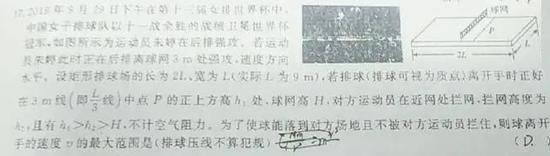 17.2019年9月29日下午在第十三届女排世界杯中,
中国女子排球队以十一战全胜的战绩卫冕世界杯
冠军,如图所示为运动员朱婷在后排强攻,若运动
员朱婷此时正在后排离球网3 m处强攻,速度方向
水平。设矩形排球场的长为2L,宽为L(实际L为9 m),若排球(排球可视为质点)离开手时正好
在3 m线(即L/3线)中点P的正上方高h₁处,球网高H,对方运动员在近网处拦网,拦网高度为
h₂,且有h₁>h₂>H,不计空气阻力。为了使球能落到对方场地且不被对方运动员拦住,则球离开
手的速度v的最大范围是(排球压线不算犯规)
(D.)
球网
P
2L
L